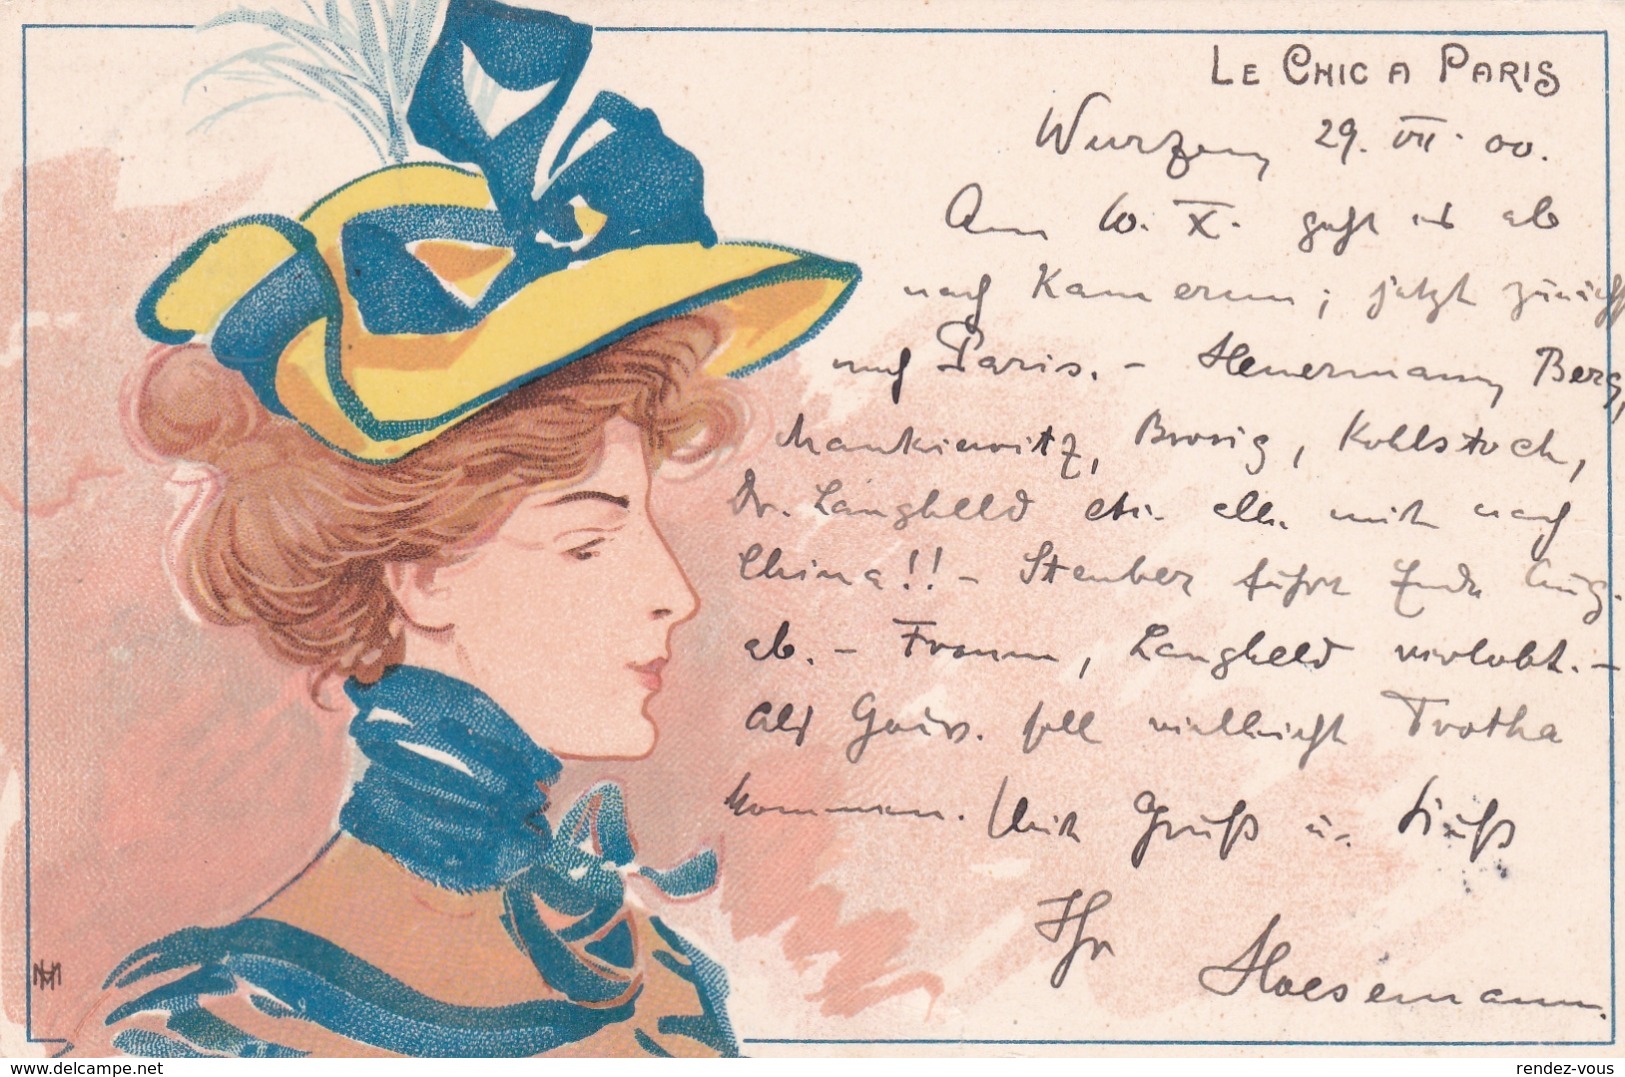 LE CHIC A PARIS
Wurzen, 29. VII. 00.
Am 10. X. geht es ab
nach Kamerun; jetzt zurück
nach Paris. – Heuermann, Berg,
Mankiewitz, Brosig, Kohlstock,
Dr. Langheld etc. alle mit nach
China!! – Steuber fährt Ende Aug.
ab. – Fromm, Langheld verlobt. –
Als Gouv. soll vielleicht Trotha
kommen. Mit Gruß u.
Ihr Hoesemann.
HM
delcampe.net
rendez-vous